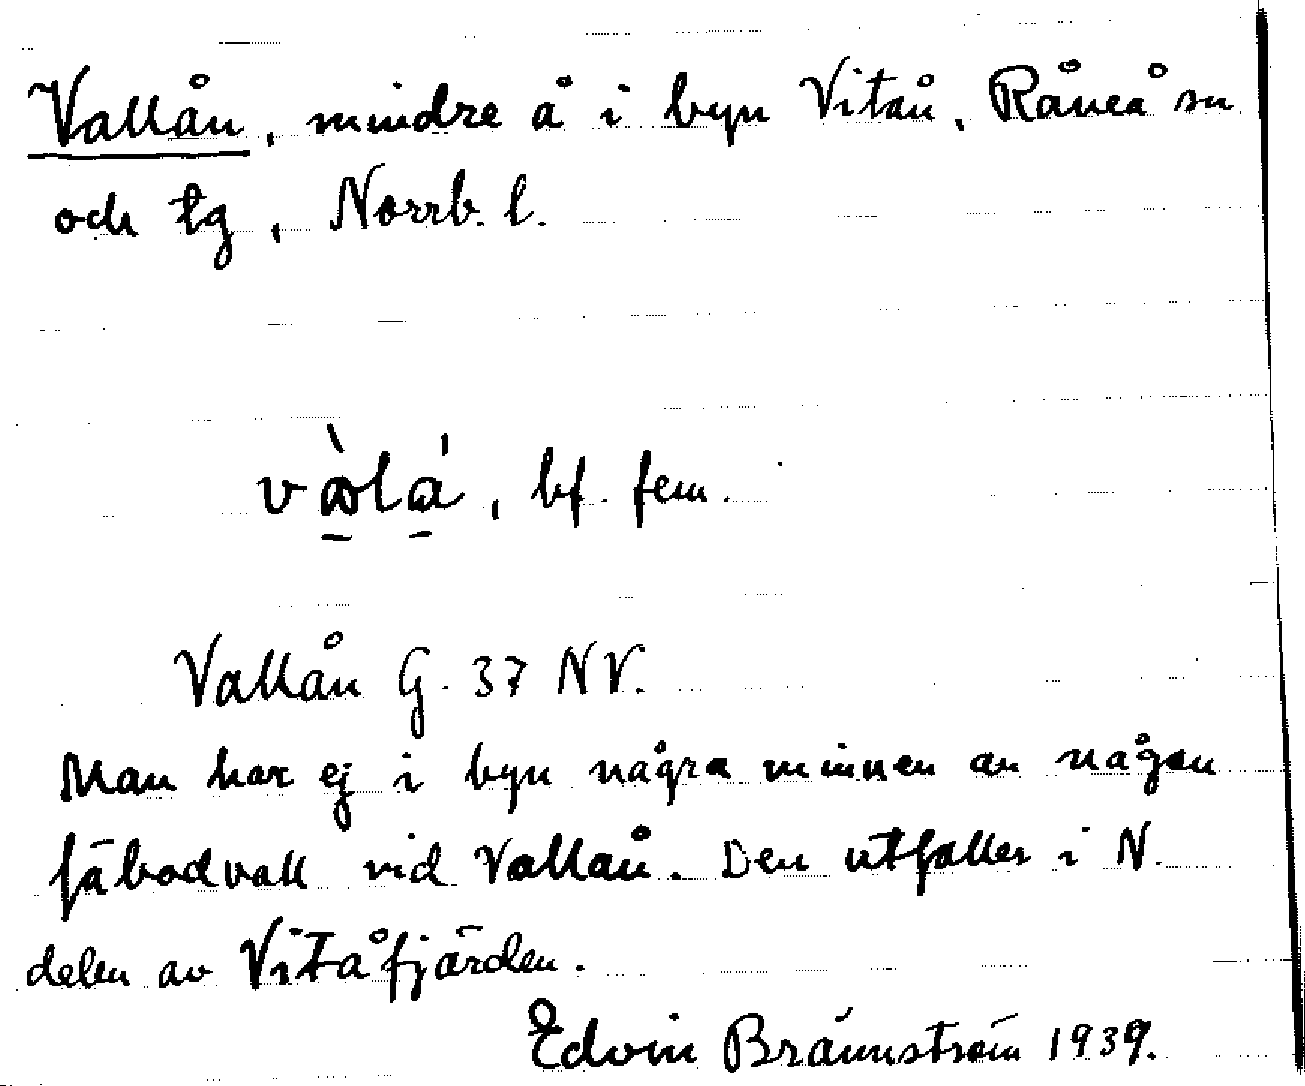 Vallån, mindre å i byn Vitån, Råneå sn
och tg, Norrb. l.
, bf. fem.
Vallån G. 37 NV.
Man har ej i byn några minnen av någon
fäbodvall vid Vallån. Den utfaller i N.
delen av Vitåfjärden.
Edvin Brännström 1939.